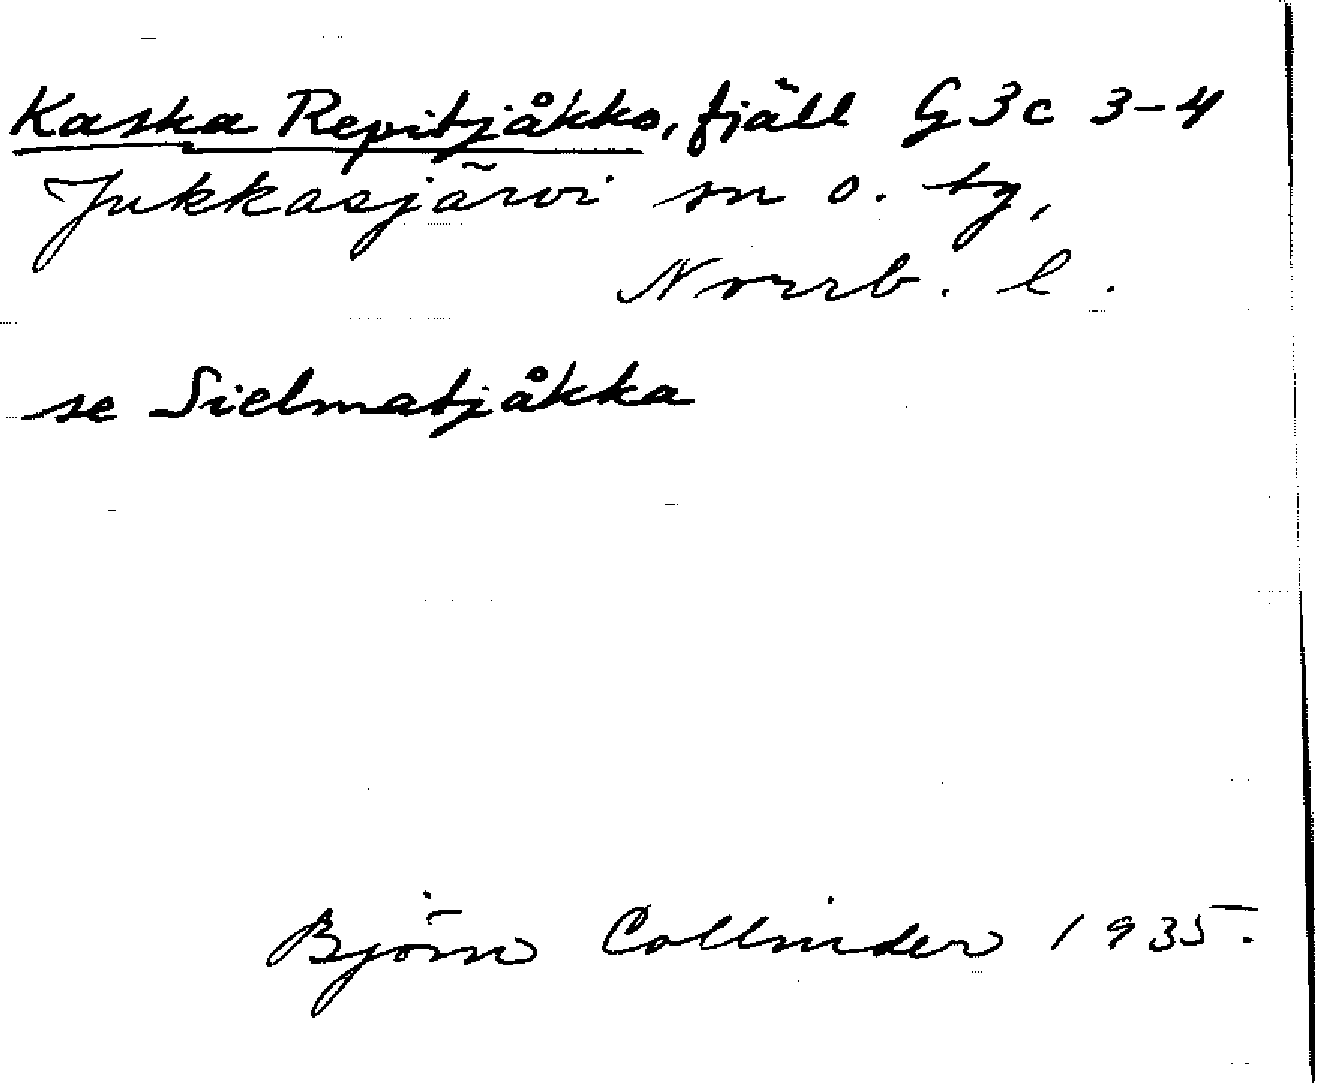 Kaska Repitjåkko, fjäll G3c 3-4
Jukkasjärvi sn o. tg,
Norrb. l.
se Sielmatjåkka
Björn Collinder 1935.